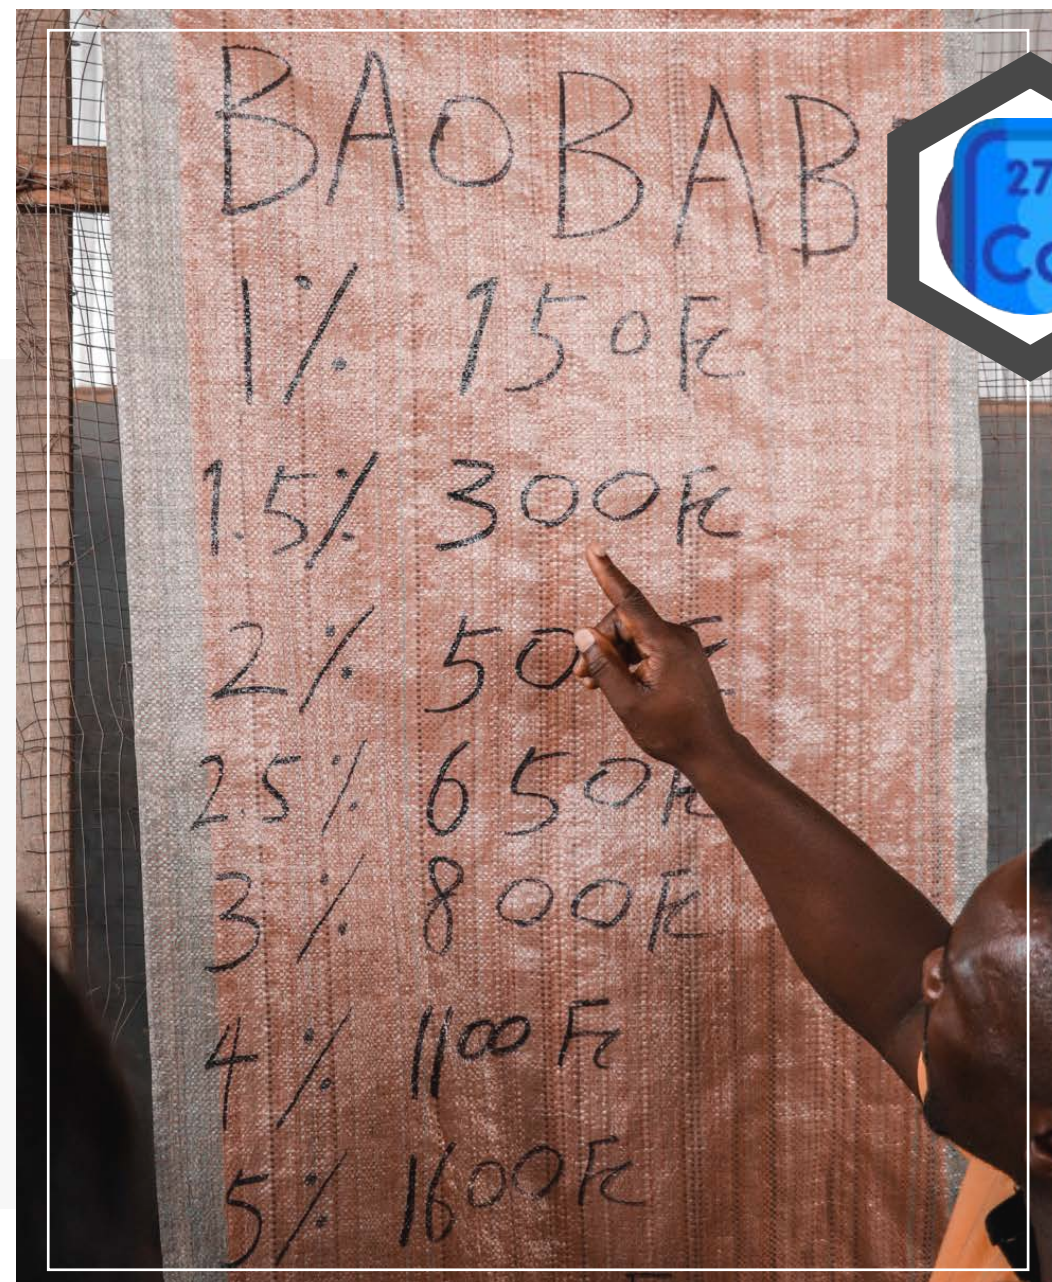 BAOBAB
27
Co
1% 150Fc
1.5% 300Fc
2% 50
2.5% 650Fc
3% 800Fc
4% 1100 Fc
5% 1600Fc